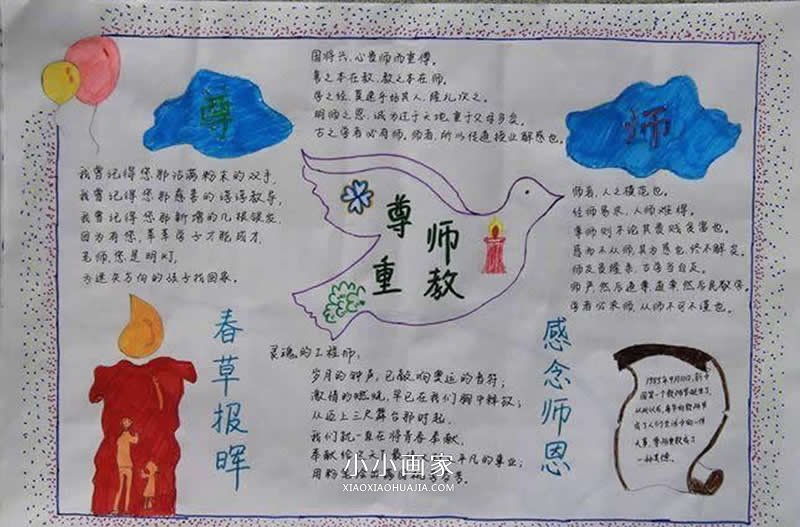 国将兴,心贵师而重傅。
善之本在教,教之本在师。
学之经,莫速乎好其人,隆礼次之。
明师之恩,诚为过于天地,重于父母多矣。
古之学者必有师。师者,所以传道授业解惑也。
尊
师
我曾记得您那沾满粉末的双手,
我曾记得您那慈善的谆谆教导,
我曾记得您那新增的几根银发,
因为有您,莘莘学子才能成才,
老师,您是明灯,
为迷失方向的孩子找回家。
尊师
重教
师者,人之模范也。
经师易求,人师难得。
尊师则不论其贵贱贫富也。
惑而不从师,其为惑也,终不解矣。
师严然后道尊,道尊然后民敬学。
学者必求师,从师不可不谨也。
春草报晖
感念师恩
灵魂的工程师:
岁月的钟声,已敲响奥运的音符;
激情的燃烧,早已在我们胸中释放;
从迈上三尺舞台那时起,
我们就一直在将青春奉献,
奉献给
平凡的事业;
用粉笔
1985年9月10日,新中
国第一个教师节诞生了,
从此以后,每年的教师节
成了人们生活中的一件
大事,尊师重教成了
一种美德。
小小画家
XIAOXIAOHUAJIA.COM